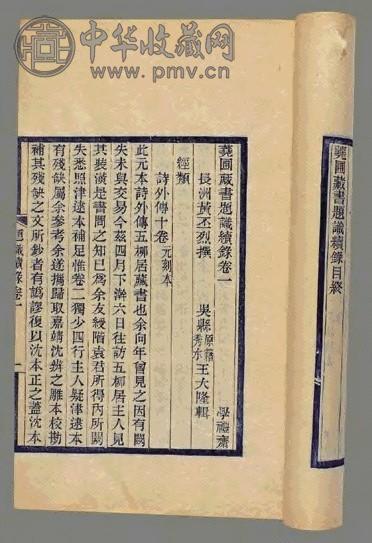 中华收藏网
www.pmv.cn
蕘圃藏書題識續錄目終
蕘圃藏書題識續錄卷一 學禮齋
長洲黃丕烈撰 吳縣原籍秀水王大隆輯
經類
詩外傳十卷元刻本
此元本詩外傳五柳居藏書也余向年曾見之因有闕
失未與交易今茲四月下澣六日往訪五柳居主人見
其裝潢是書問之知已為余友綬階袁君所得內所闕
失悉照津逮本補足惟卷二獨少四行主人疑津逮本
有殘缺屬余參考余遂攜歸取嘉靖沈辨之雕本校勘
補其殘缺之文所鈔者有譌謬復以沈本正之蓋沈本
題識續錄卷一 一